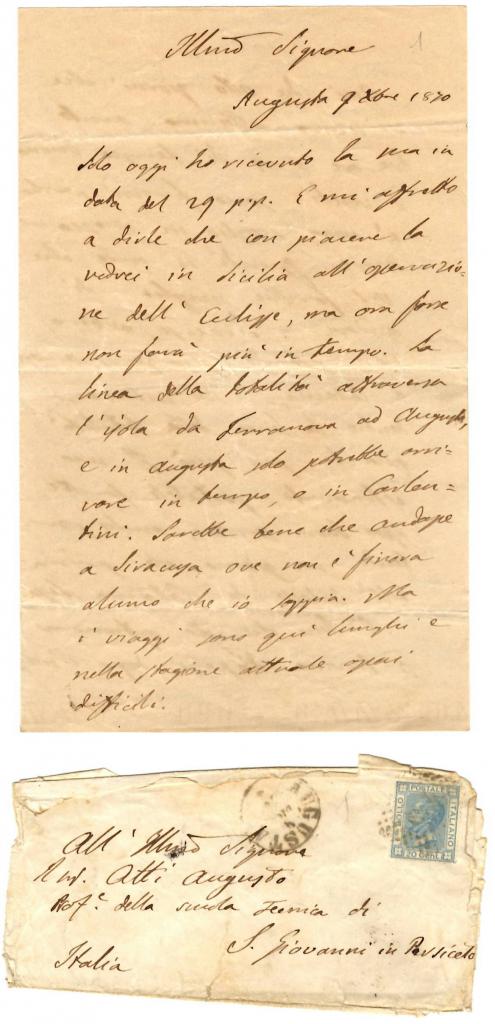 Illmo Signore
1
Augusta 9 Xbre 1870
Solo oggi ho ricevuto la sua in
data del 29 p.p. E mi affretto
a dirle che con piacere la
vedrei in Sicilia all'operazio-
ne dell' Eclisse, ma ora forse
non farà più in tempo. La
linea della totalità attraversa
l'isola da Terranova ad Augusta,
e in Augusta solo potrebbe arri-
vare in tempo, o in Carlen-
tini. Sarebbe bene che andasse
a Siracusa ove non è finora
alcuno che io sappia. Ma
i viaggi sono qui lunghi e
nella stagione attuale assai
difficili.
AUGUSTA
1
BOLLO POSTALE ITALIANO
20 CENT
All' Illmo Signore
Atti Augusto
Profe. della scuola Tecnica di
S. Giovanni in Persiceto
Italia